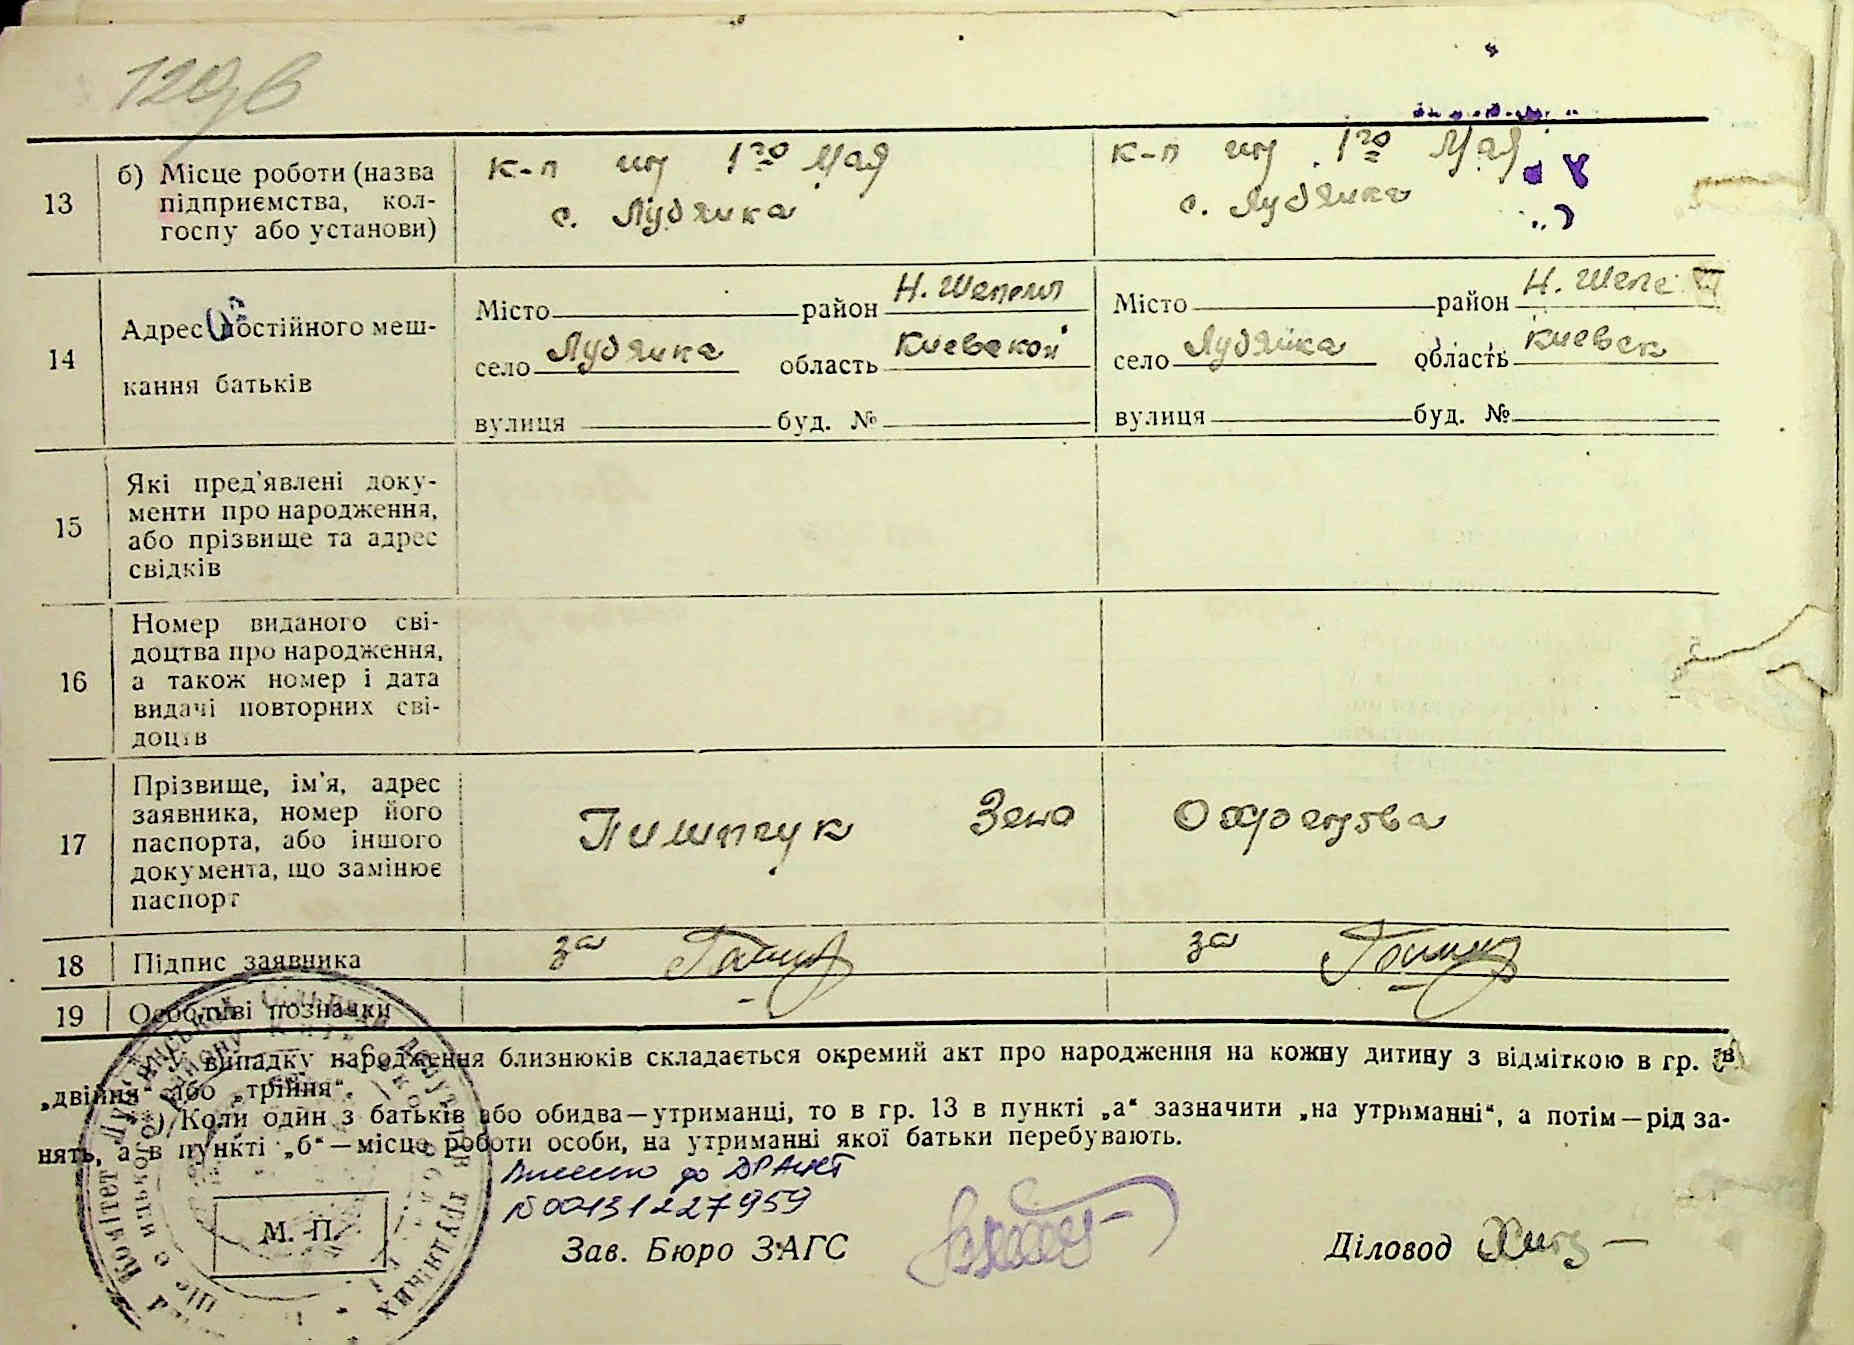 13
б) Місце роботи (назва
підприємства, кол-
госпу або установи)
к-п им 1го Мая
с. Лудянка
к-п им 1го Мая
с. Лудянка
14
Адрес постійного меш-
кання батьків
Місто район Н. Шепел
село Лудянка область Киевской
вулиця буд. №
Місто район Н. Шепе
село Лудянка область Киевск
вулиця буд. №
15
Які пред'явлені доку-
менти про народження,
або прізвище та адрес
свідків
16
Номер виданого сві-
доцтва про народження,
а також номер і дата
видачі повторних сві-
доцтв
17
Прізвище, ім'я, адрес
заявника, номер його
паспорта, або іншого
документа, що замінює
паспорт
Зена
18
Підпис заявника
за
за
19
Особливі позначки
У випадку народження близнюків складається окремий акт про народження на кожну дитину з відміткою в гр.
„двійня“ або „трійня“.
Коли один з батьків або обидва—утриманці, то в гр. 13 в пункті „а“ зазначити „на утриманні“, а потім—рід за-
нять, а в пункті „б“—місце роботи особи, на утриманні якої батьки перебувають.
Внесено до ДРАЦСГ
№00131227959
М. П.
Зав. Бюро ЗАГС
Діловод